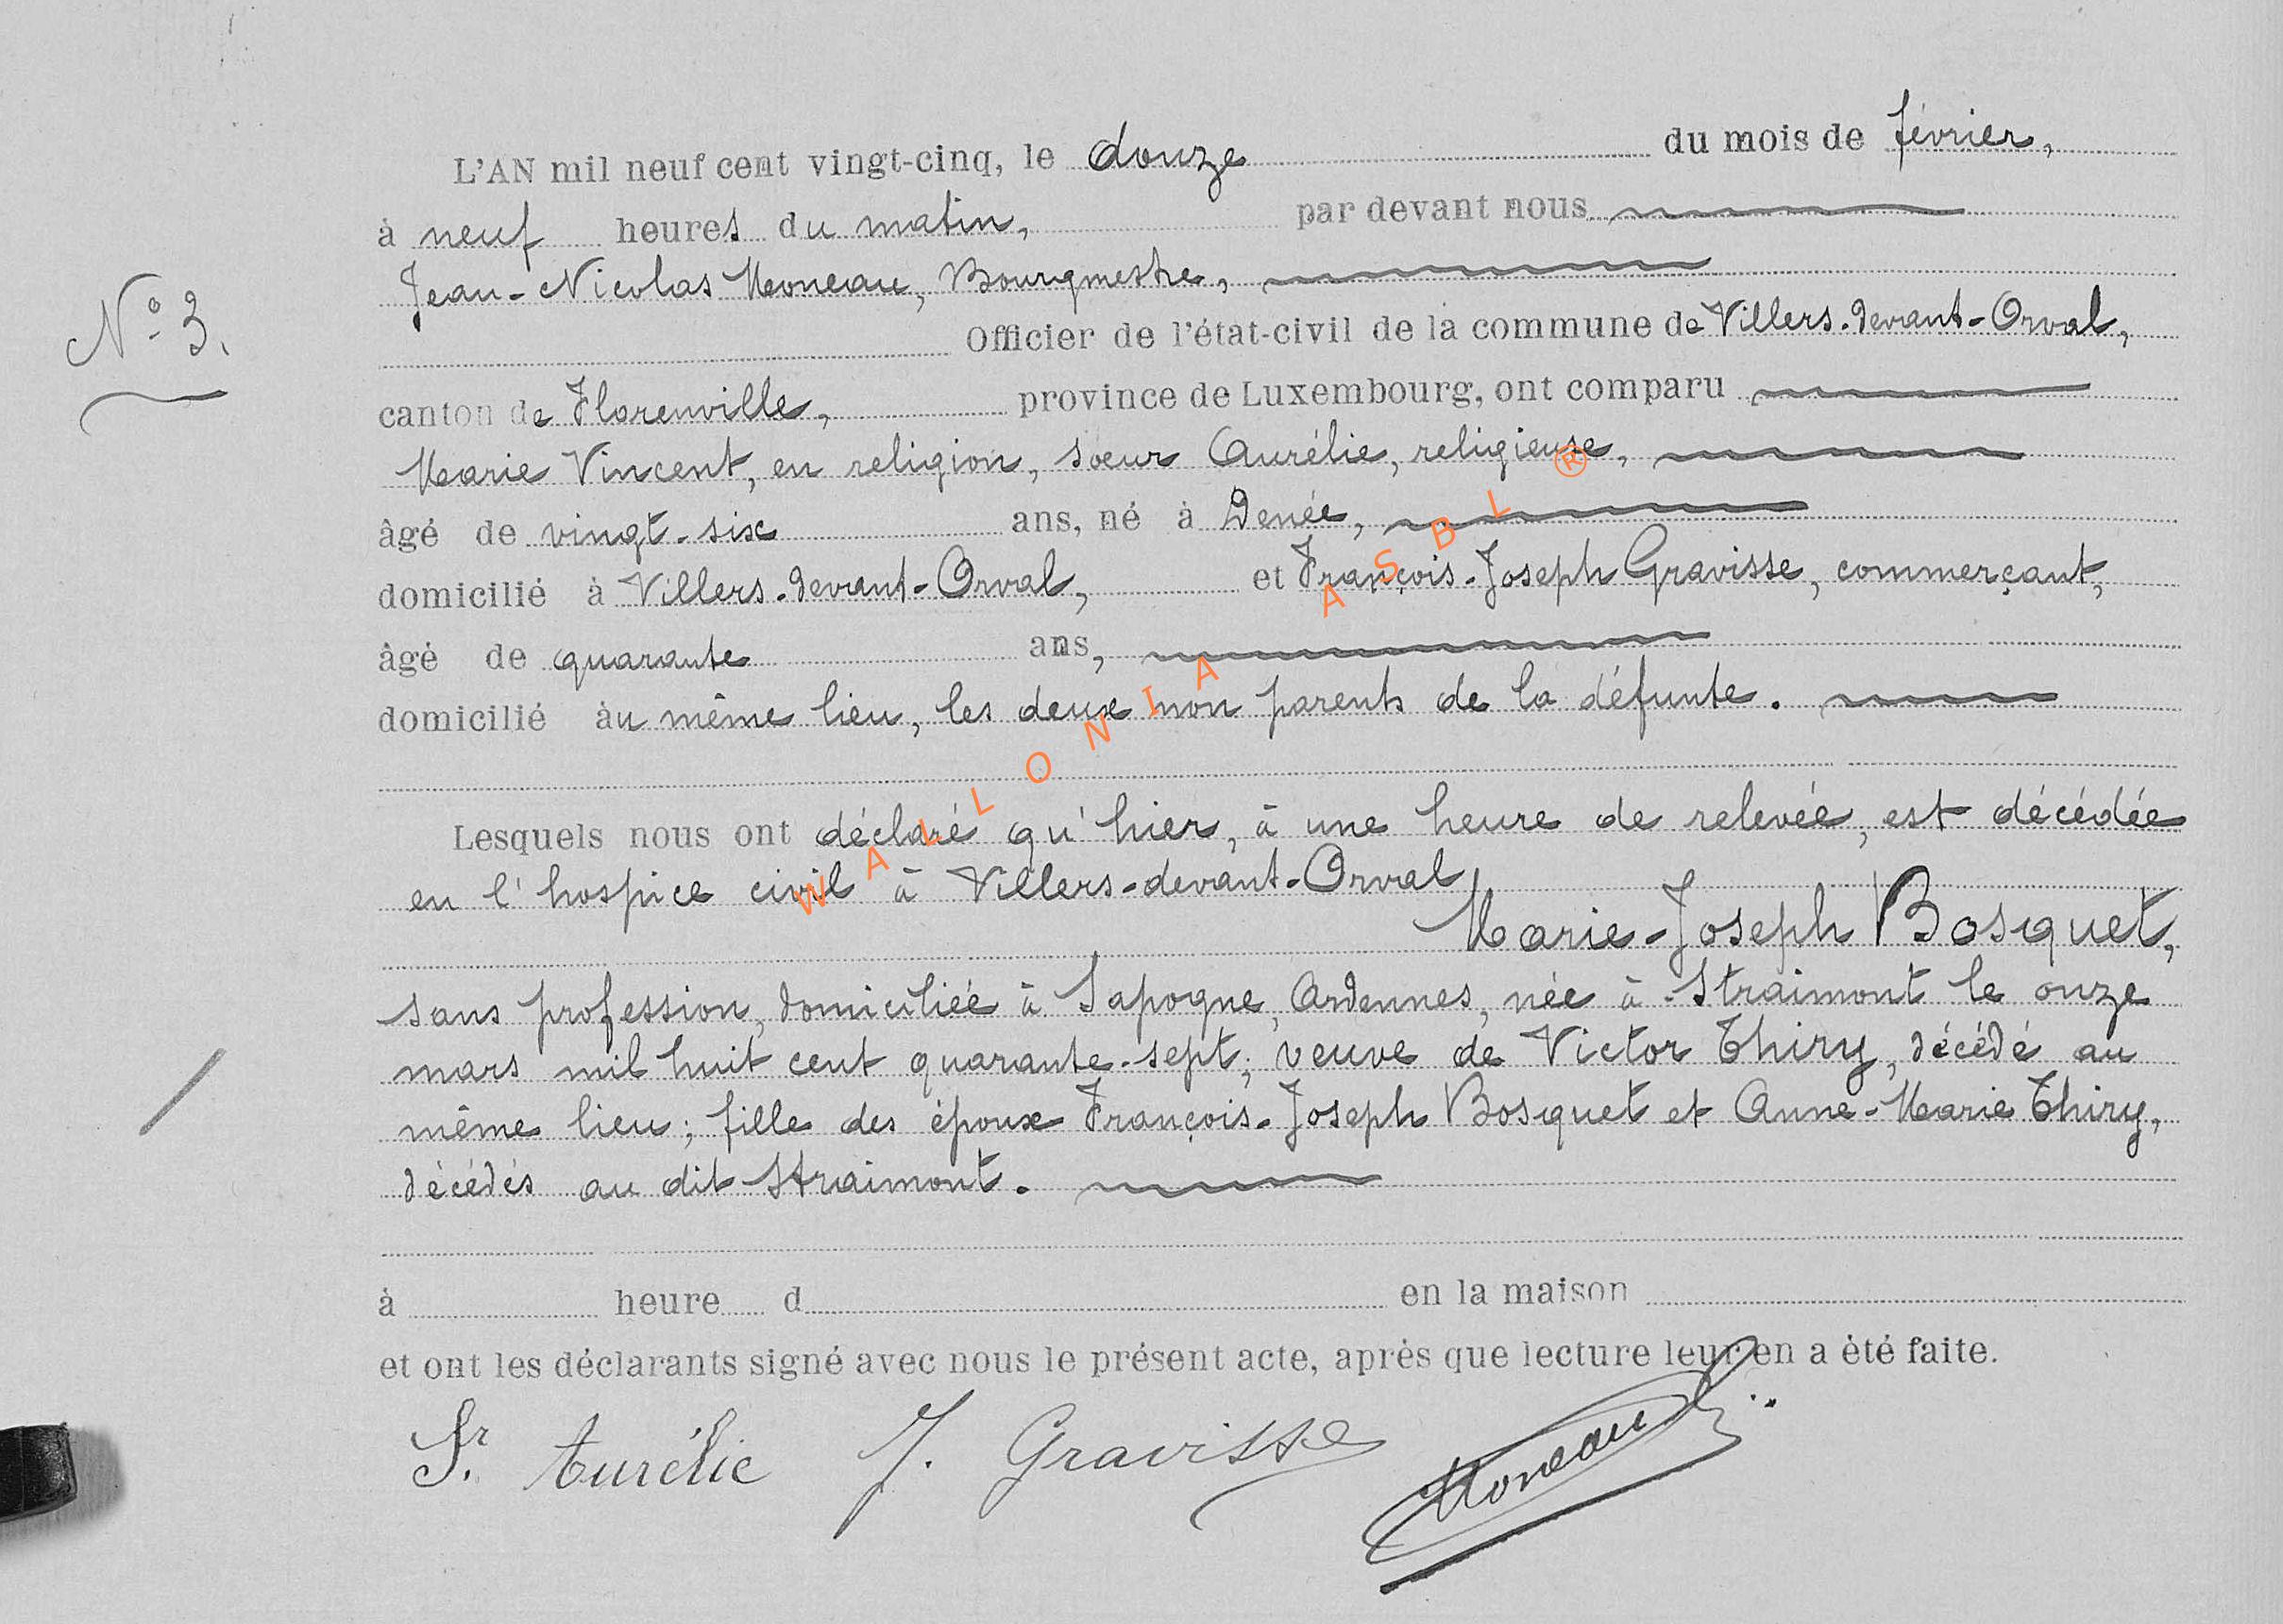 L'AN mil neuf cent vingt-cinq, le douze du mois de février,
à neuf heures du matin, par devant nous
Jean-Nicolas Moneau, Bourgmestre,
N° 3.
Officier de l'état-civil de la commune de Villers-devant-Orval,
canton de Florenville, province de Luxembourg, ont comparu
Marie Vincent, en religion, soeur Aurélie, religieuse,
âgé de vingt-six ans, né à Denée,
domicilié à Villers-devant-Orval, et François-Joseph Gravisse, commerçant,
âgé de quarante ans,
domicilié au même lieu, les deux non parents de la défunte.
Lesquels nous ont déclaré qu'hier, à une heure de relevée, est décédée
en l'hospice civil à Villers-devant-Orval
Marie-Joseph Bosquet,
sans profession, domiciliée à Sapogne, Ardennes, née à Straimont le onze
mars mil huit cent quarante-sept; veuve de Victor Thiry, décédé au
même lieu; fille des époux François-Joseph Bosquet et Anne-Marie Thiry,
décédés au dit Straimont.
à heure d en la maison
et ont les déclarants signé avec nous le présent acte, après que lecture leur en a été faite.
Sr. Aurélie J. Gravisse Moneau
WALLONIA ASBL ®